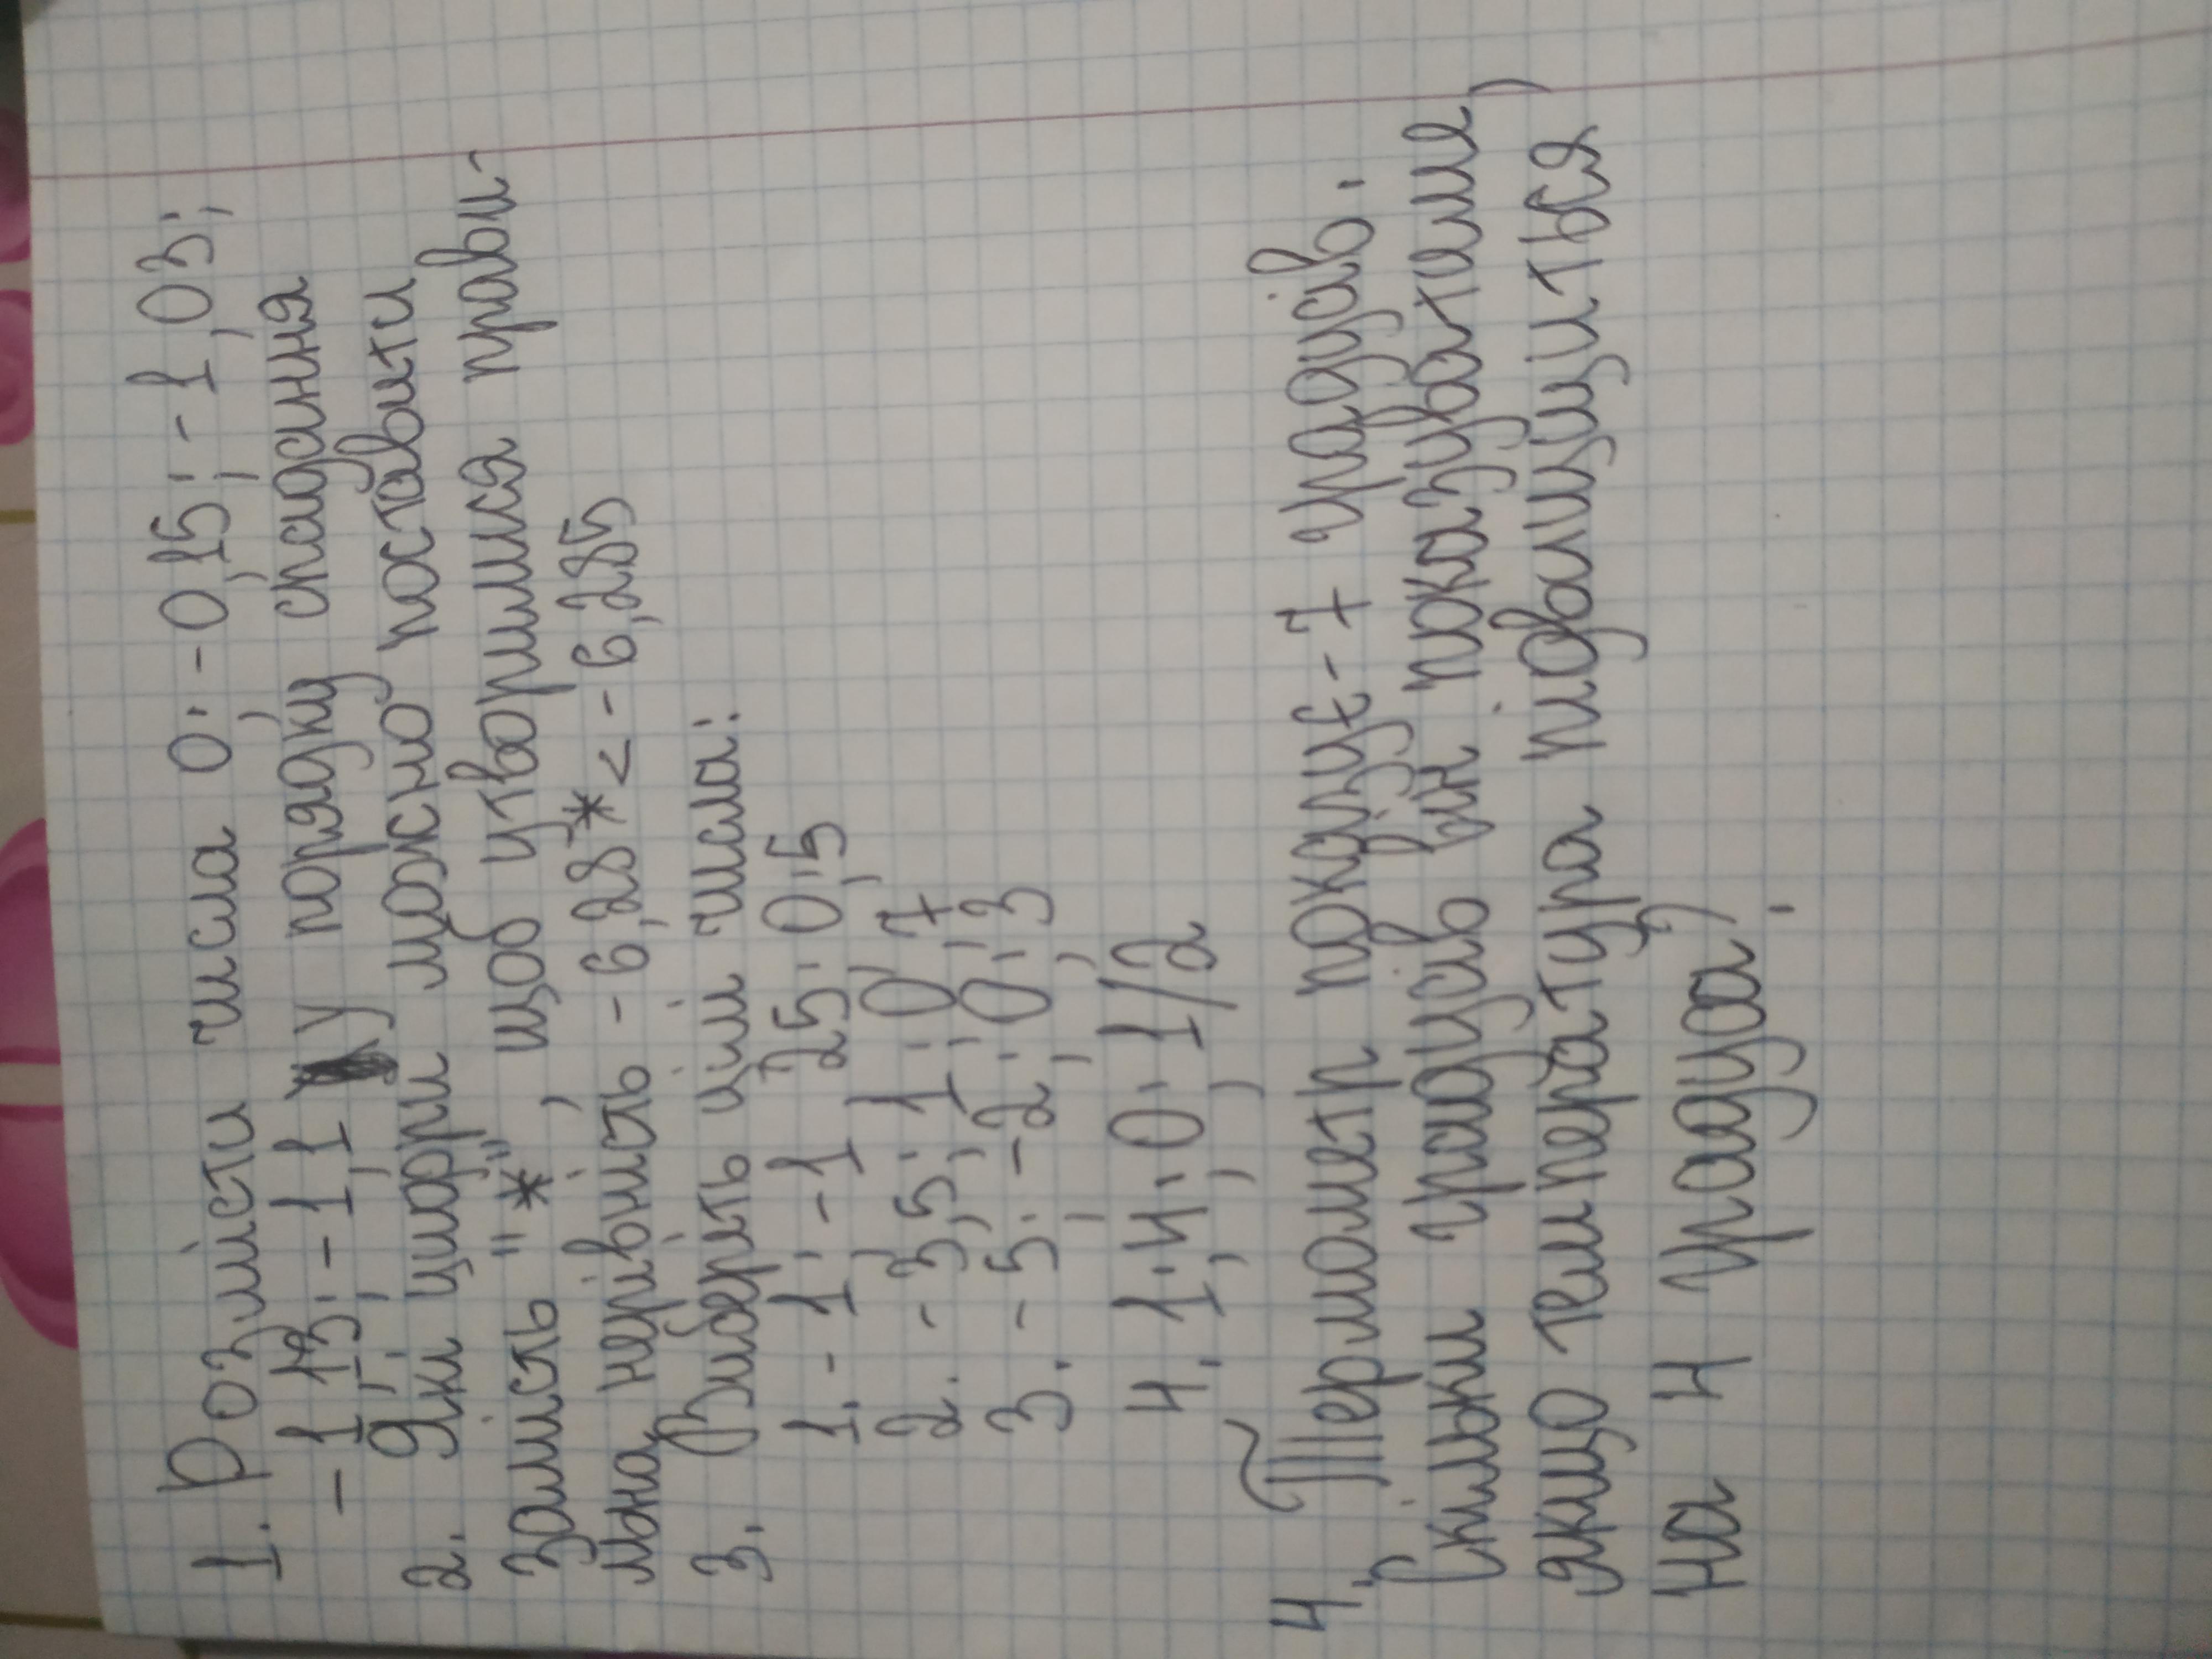 1. Розмісти числа 0; -0,15; -1,03;
-1,13; -1,1 у порядку спадання
2. Які цифри можно поставити
замість "*", щоб утворилися прави-
льна нерівність -6,28*<-6,285
3. Виберіть цілі числа:
1. -1; -1; 25; 0,5
2. -3,5; 1; 0; 7
3. -5; -2; 0; 3
4. 1; 4; 0; 1/2
4. Термометр показує -7 градусів.
Скільки градусів він показуватиме,
якщо температура підвищиться
на 4 градуса?